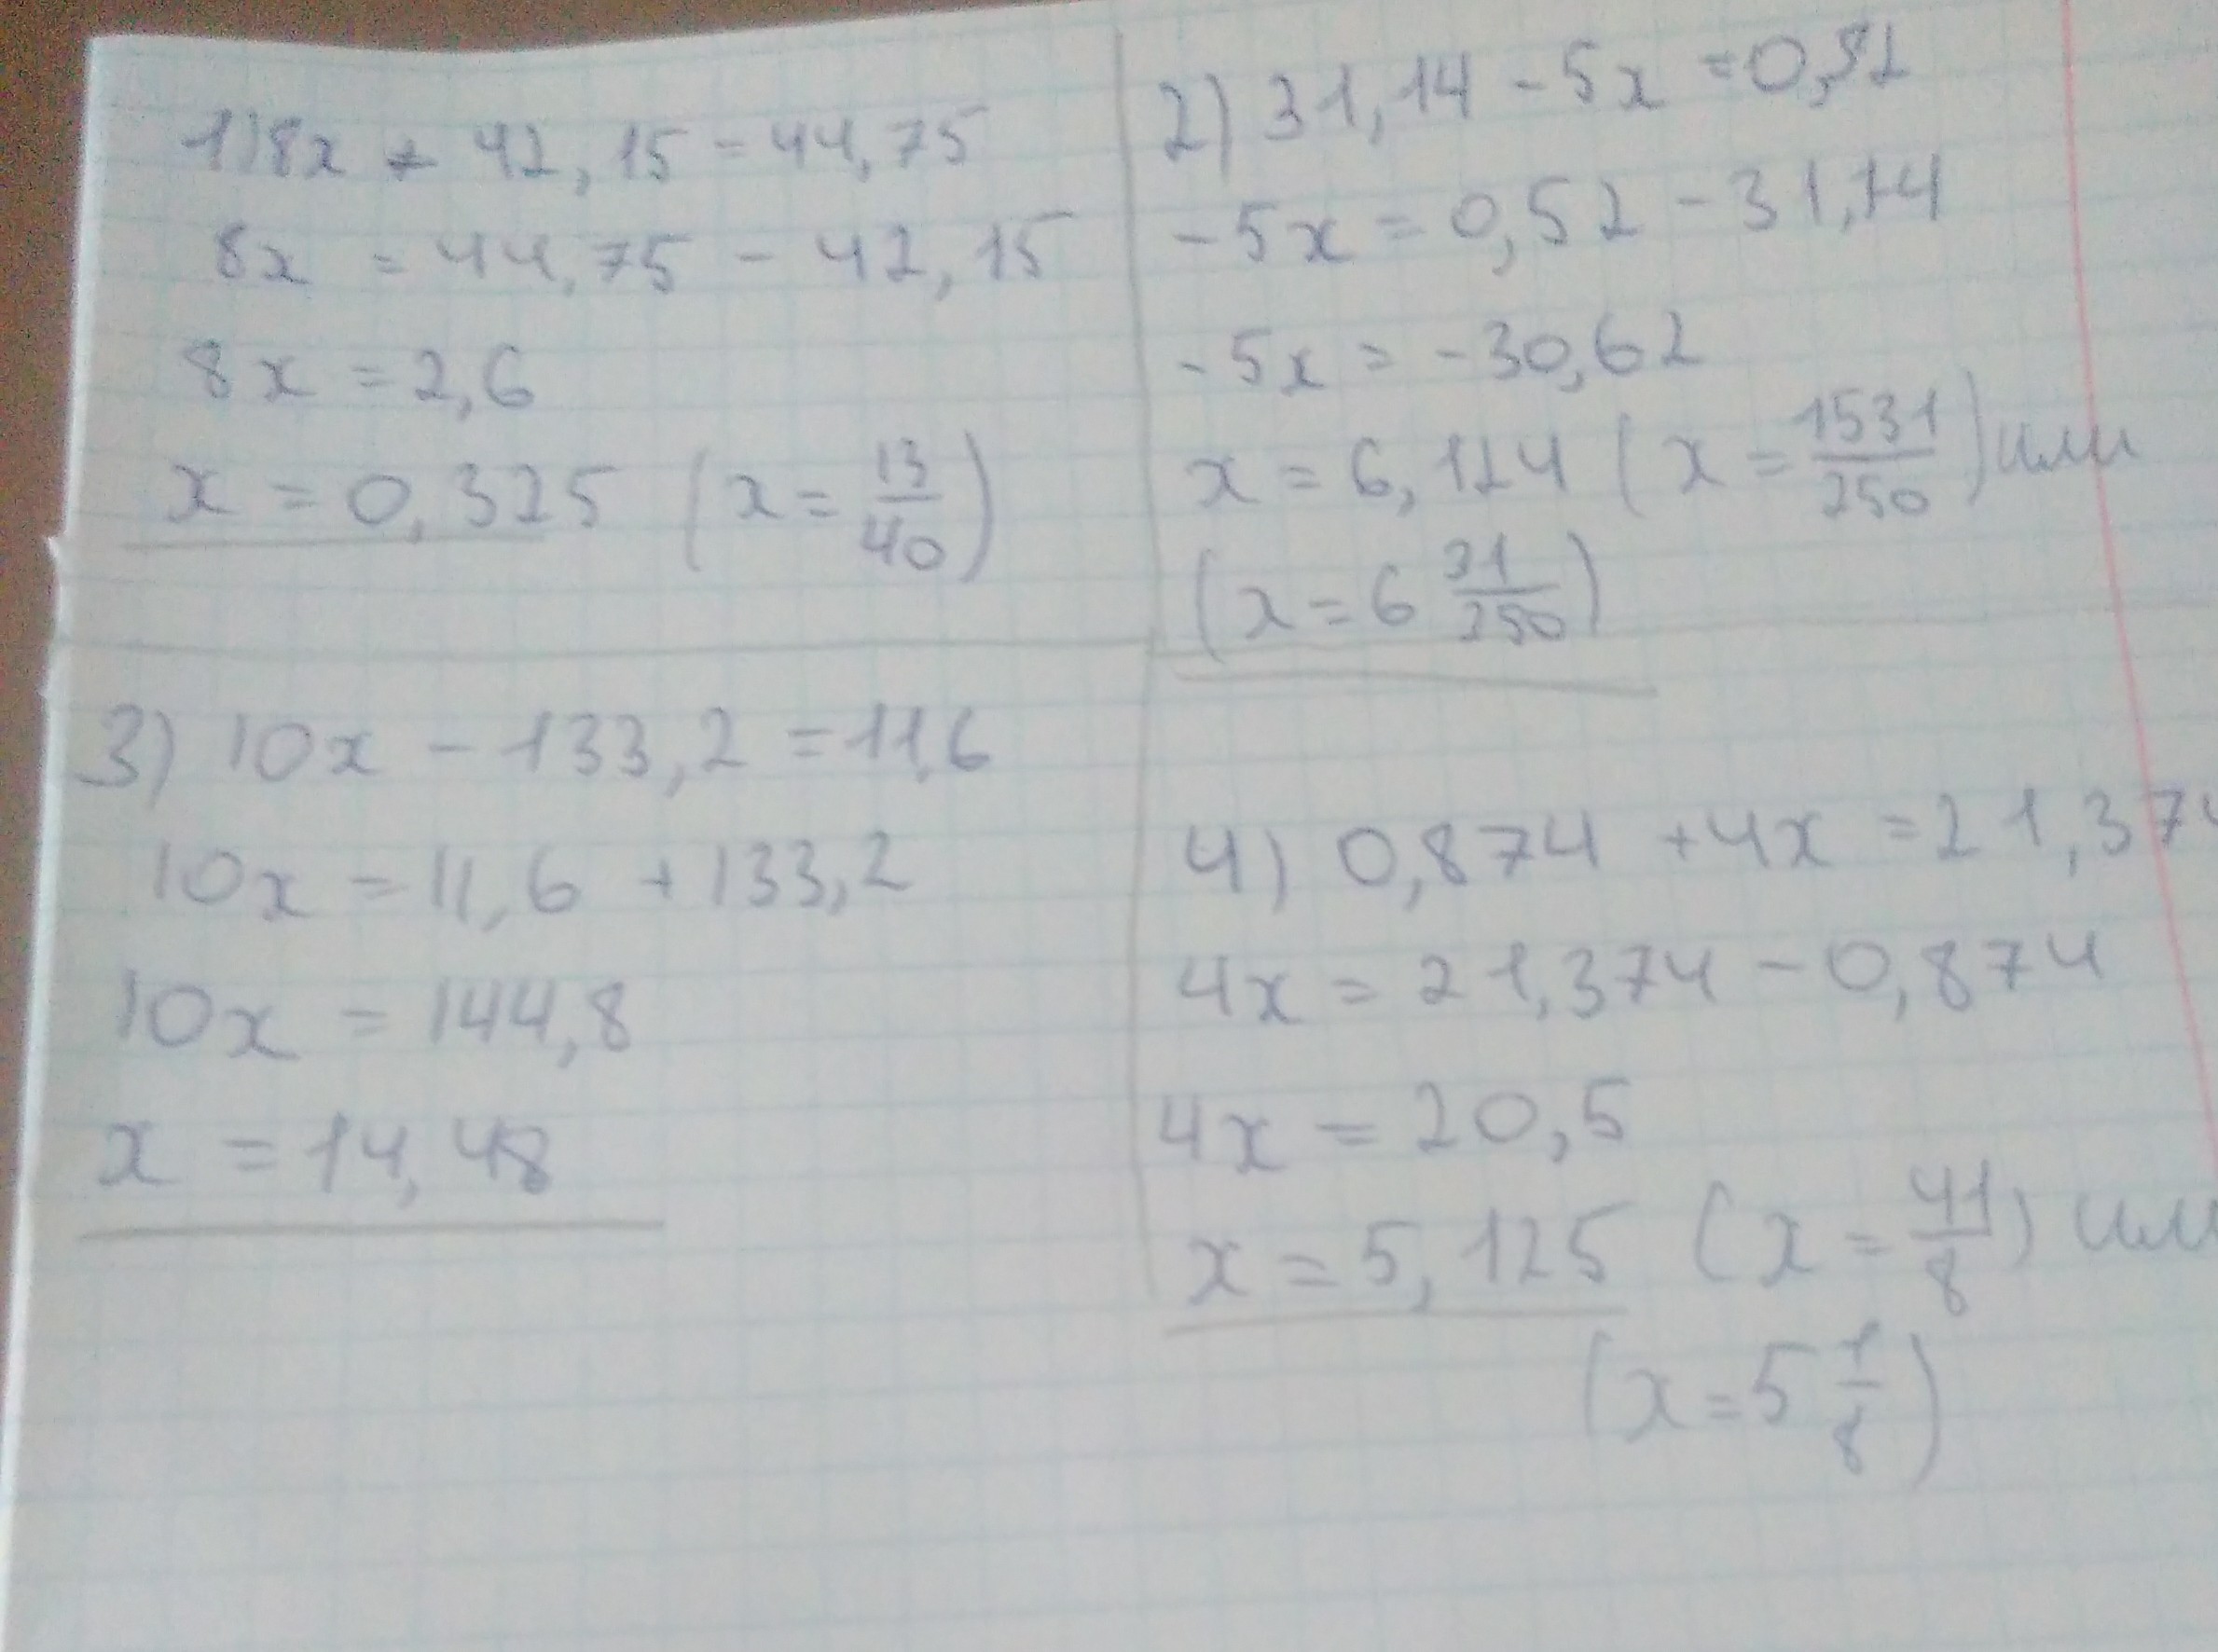 1) 8x + 42,15 = 44,75
8x = 44,75 - 42,15
8x = 2,6
x = 0,325 (x = 13/40)
2) 31,14 - 5x = 0,52
-5x = 0,52 - 31,14
-5x = -30,62
x = 6,124 (x = 1531/250) или
(x = 6 31/250)
3) 10x - 133,2 = 11,6
10x = 11,6 + 133,2
10x = 144,8
x = 14,48
4) 0,874 + 4x = 21,374
4x = 21,374 - 0,874
4x = 20,5
x = 5,125 (x = 41/8) или
(x = 5 1/8)